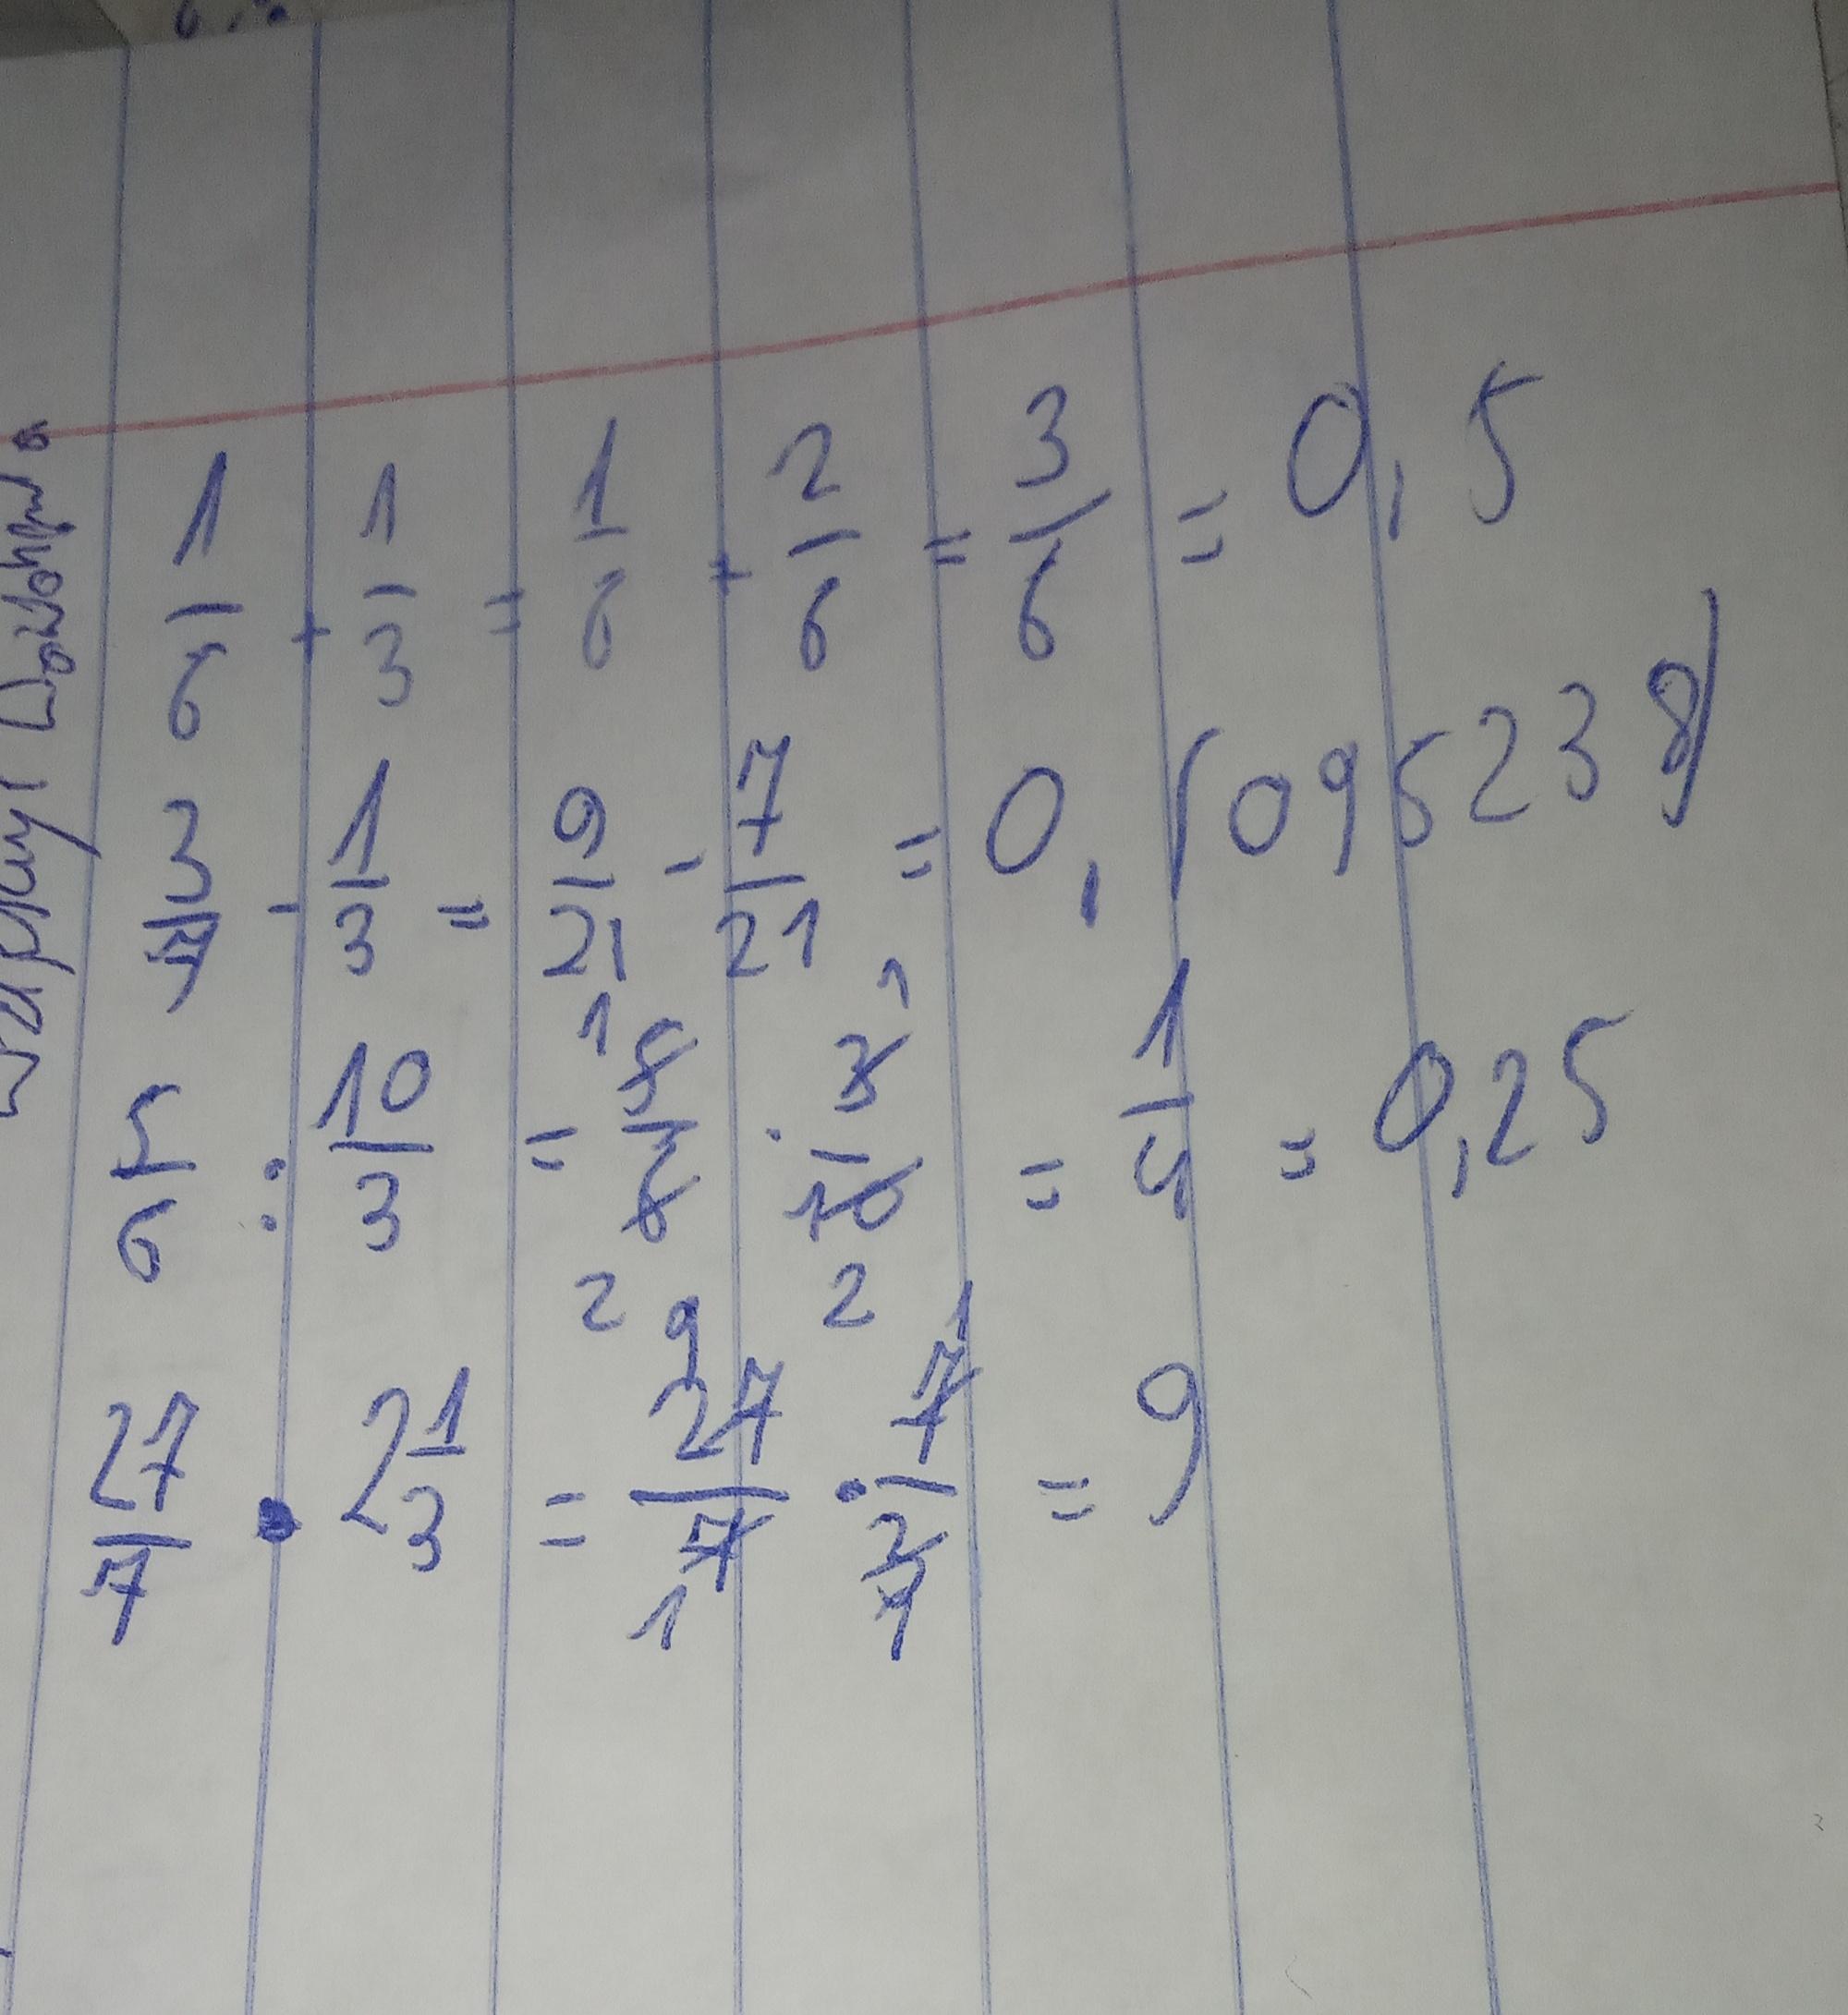 1/6 + 1/3 = 1/6 + 2/6 = 3/6 = 0,5
3/7 - 1/3 = 9/21 - 7/21 = 0,(095238)
5/6 : 10/3 = 5/6 · 3/10 = 1/4 = 0,25
27/7 · 2 1/3 = 27/7 · 7/3 = 9